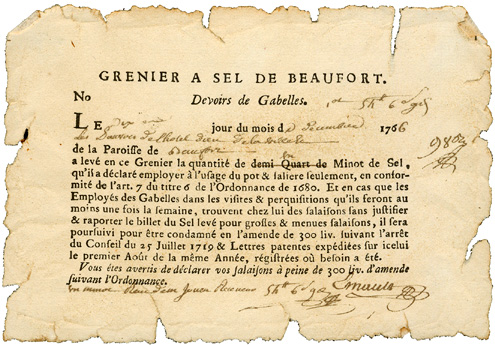 GRENIER A SEL DE BEAUFORT.
No Devoirs de Gabelles.
LE dix jour du mois de décembre 1766
Les Pauvres de l'hotel dieu
de la Paroisse de beaufort
a levé en ce Grenier la quantité de demi Quart de Minot de Sel,
qu'il a déclaré employer à l'usage du pot & saliere seulement, en confor-
mité de l'art. 7 du titre 6 de l'Ordonnance de 1680. Et en cas que les
Employés des Gabelles dans les visites & perquisitions qu'ils feront au
moins une fois la semaine, trouvent chez lui des salaisons sans justifier
& raporter le billet du Sel levé pour grosses & menues salaisons, il sera
poursuivi pour être condamné en l'amende de 300 liv. suivant l'arrêt
du Conseil du 25 Juillet 1719 & Lettres patentes expédiées sur icelui
le premier Août de la même Année, régistrées où besoin a été.
Vous êtes avertis de déclarer vos salaisons à peine de 300 liv. d'amende
suivant l'Ordonnance.